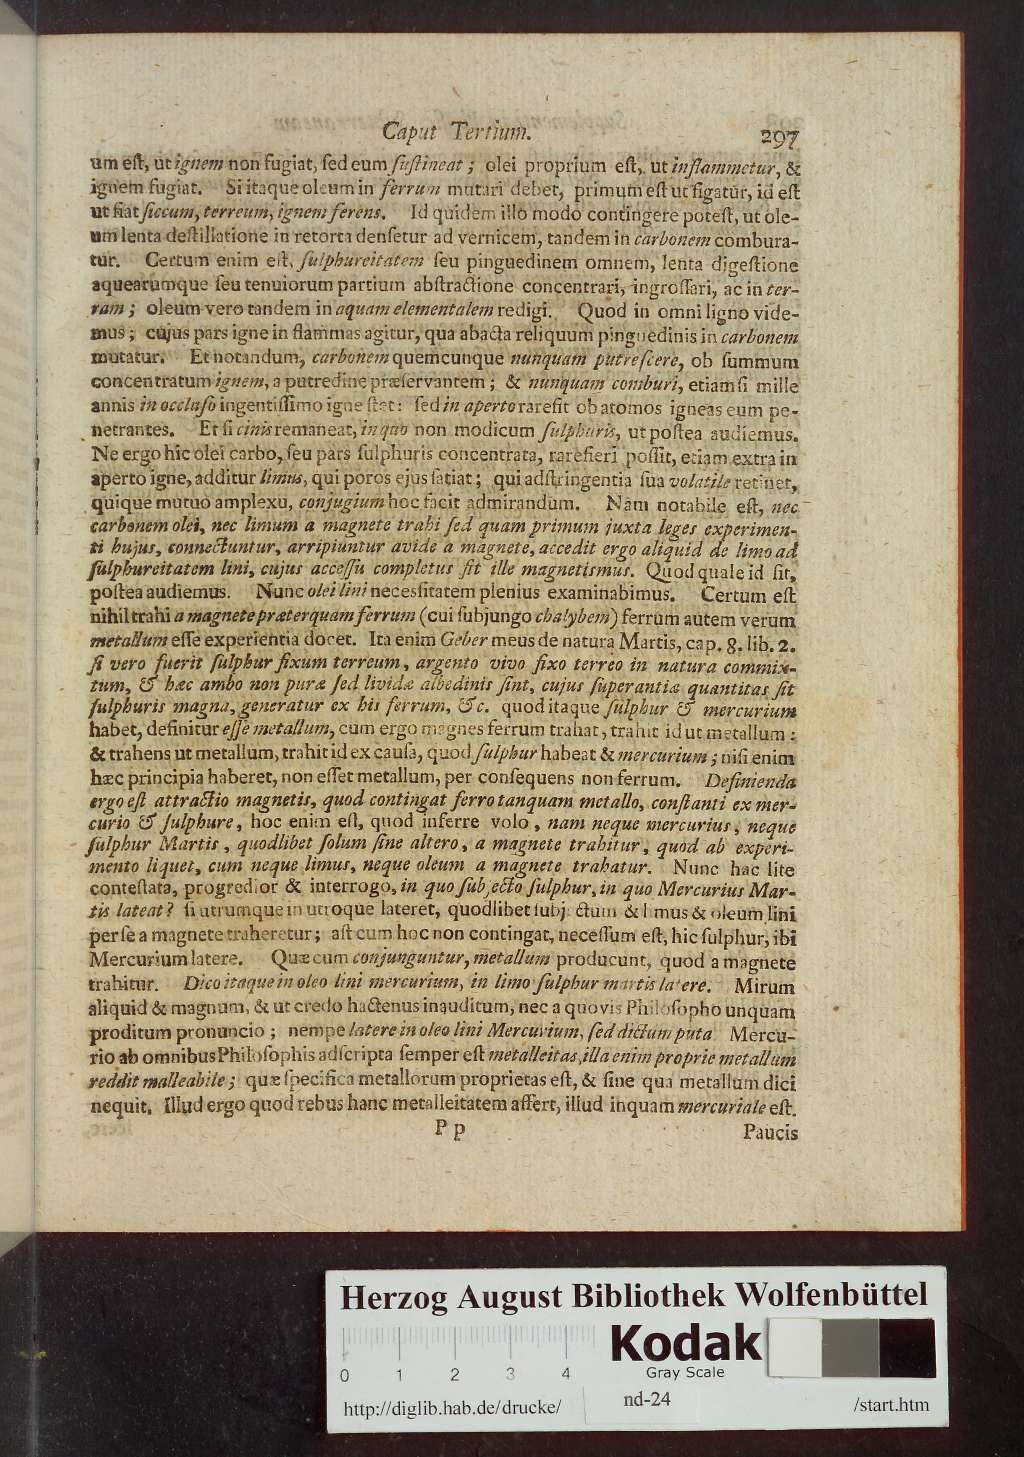 Caput Tertium. 297
um eſt, ut ignem non fugiat, ſed eum ſuſtineat; olei proprium eſt, ut inflammetur, &
ignem fugiat. Si itaque oleum in ferrum mutari debet, primum eſt ut figatur, id eſt
ut fiat ſiccum, terreum, ignem ferens. Id quidem illo modo contingere poteſt, ut ole-
um lenta deſtillatione in retorta denſetur ad vernicem, tandem in carbonem combura-
tur. Certum enim eſt, ſulphureitatem ſeu pinguedinem omnem, lenta digeſtione
aquearumque ſeu tenuiorum partium abſtractione concentrari, ingroſſari, ac in ter-
ram; oleum vero tandem in aquam elementalem redigi. Quod in omni ligno vide-
mus; cujus pars igne in flammas agitur, qua abacta reliquum pinguedinis in carbonem
mutatur. Et notandum, carbonem quemcunque nunquam putreſcere, ob ſummum
concentratum ignem, a putredine præſervantem; & nunquam comburi, etiamſi mille
annis in occluſo ingentiſſimo igne ſtet: ſed in aperto rarefit ob atomos igneas eum pe-
netrantes. Et ſi cinis remaneat, in quo non modicum ſulphuris, ut poſtea audiemus.
Ne ergo hic olei carbo, ſeu pars ſulphuris concentrata, rarefieri poſſit, etiam extra in
aperto igne, additur limus, qui poros ejus ſatiat; qui adſtringentia ſua volatile retinet,
quique mutuo amplexu, conjugium hoc facit admirandum. Nam notabile eſt, nec
carbonem olei, nec limum a magnete trahi ſed quam primum juxta leges experimen-
ti hujus, connectuntur, arripiuntur avide a magnete, accedit ergo aliquid de limo ad
ſulphureitatem lini, cujus acceſſu completus fit ille magnetismus. Quod quale id ſit,
poſtea audiemus. Nunc olei lini neceſſitatem plenius examinabimus. Certum eſt
nihil trahi a magnete præterquam ferrum (cui ſubjungo chalybem) ferrum autem verum
metallum eſſe experientia docet. Ita enim Geber meus de natura Martis, cap. 8. lib. 2.
ſi vero fuerit ſulphur fixum terreum, argento vivo fixo terreo in natura commix-
tum, & hæc ambo non puræ ſed lividæ albedinis ſint, cujus ſuperantiæ quantitas ſit
ſulphuris magna, generatur ex his ferrum, &c. quod itaque ſulphur & mercurium
habet, definitur eſſe metallum, cum ergo magnes ferrum trahat, trahit id ut metallum:
& trahens ut metallum, trahit id ex cauſa, quod ſulphur habeat & mercurium; niſi enim
hæc principia haberet, non eſſet metallum, per conſequens non ferrum. Definienda
ergo eſt attractio magnetis, quod contingat ferro tanquam metallo, conſtanti ex mer-
curio & ſulphure, hoc enim eſt, quod inferre volo, nam neque mercurius, neque
ſulphur Martis, quodlibet ſolum ſine altero, a magnete trahitur, quod ab experi-
mento liquet, cum neque limus, neque oleum a magnete trahatur. Nunc hac lite
conteſtata, progredior & interrogo, in quo ſubjecto ſulphur, in quo Mercurius Mar-
tis lateat? ſi utrumque in utroque lateret, quodlibet ſubjectum & limus & oleum lini
per ſe a magnete traheretur; aſt cum hoc non contingat, neceſſum eſt, hic ſulphur, ibi
Mercurium latere. Quæ cum conjunguntur, metallum producunt, quod a magnete
trahitur. Dico itaque in oleo lini mercurium, in limo ſulphur martis latere. Mirum
aliquid & magnum, & ut credo hactenus inauditum, nec a quovis Philoſopho unquam
proditum pronuncio; nempe latere in oleo lini Mercurium, ſed dictum puta Mercu-
rio ab omnibus Philoſophis adſcripta ſemper eſt metalleitas, illa enim proprie metallum
reddit malleabile; quæ ſpecifica metallorum proprietas eſt, & ſine qua metallum dici
nequit. Illud ergo quod rebus hanc metalleitatem affert, illud inquam mercuriale eſt.
P p Paucis
Herzog August Bibliothek Wolfenbüttel
Kodak
Gray Scale
0 1 2 3 4
http://diglib.hab.de/drucke/ nd-24 /start.htm